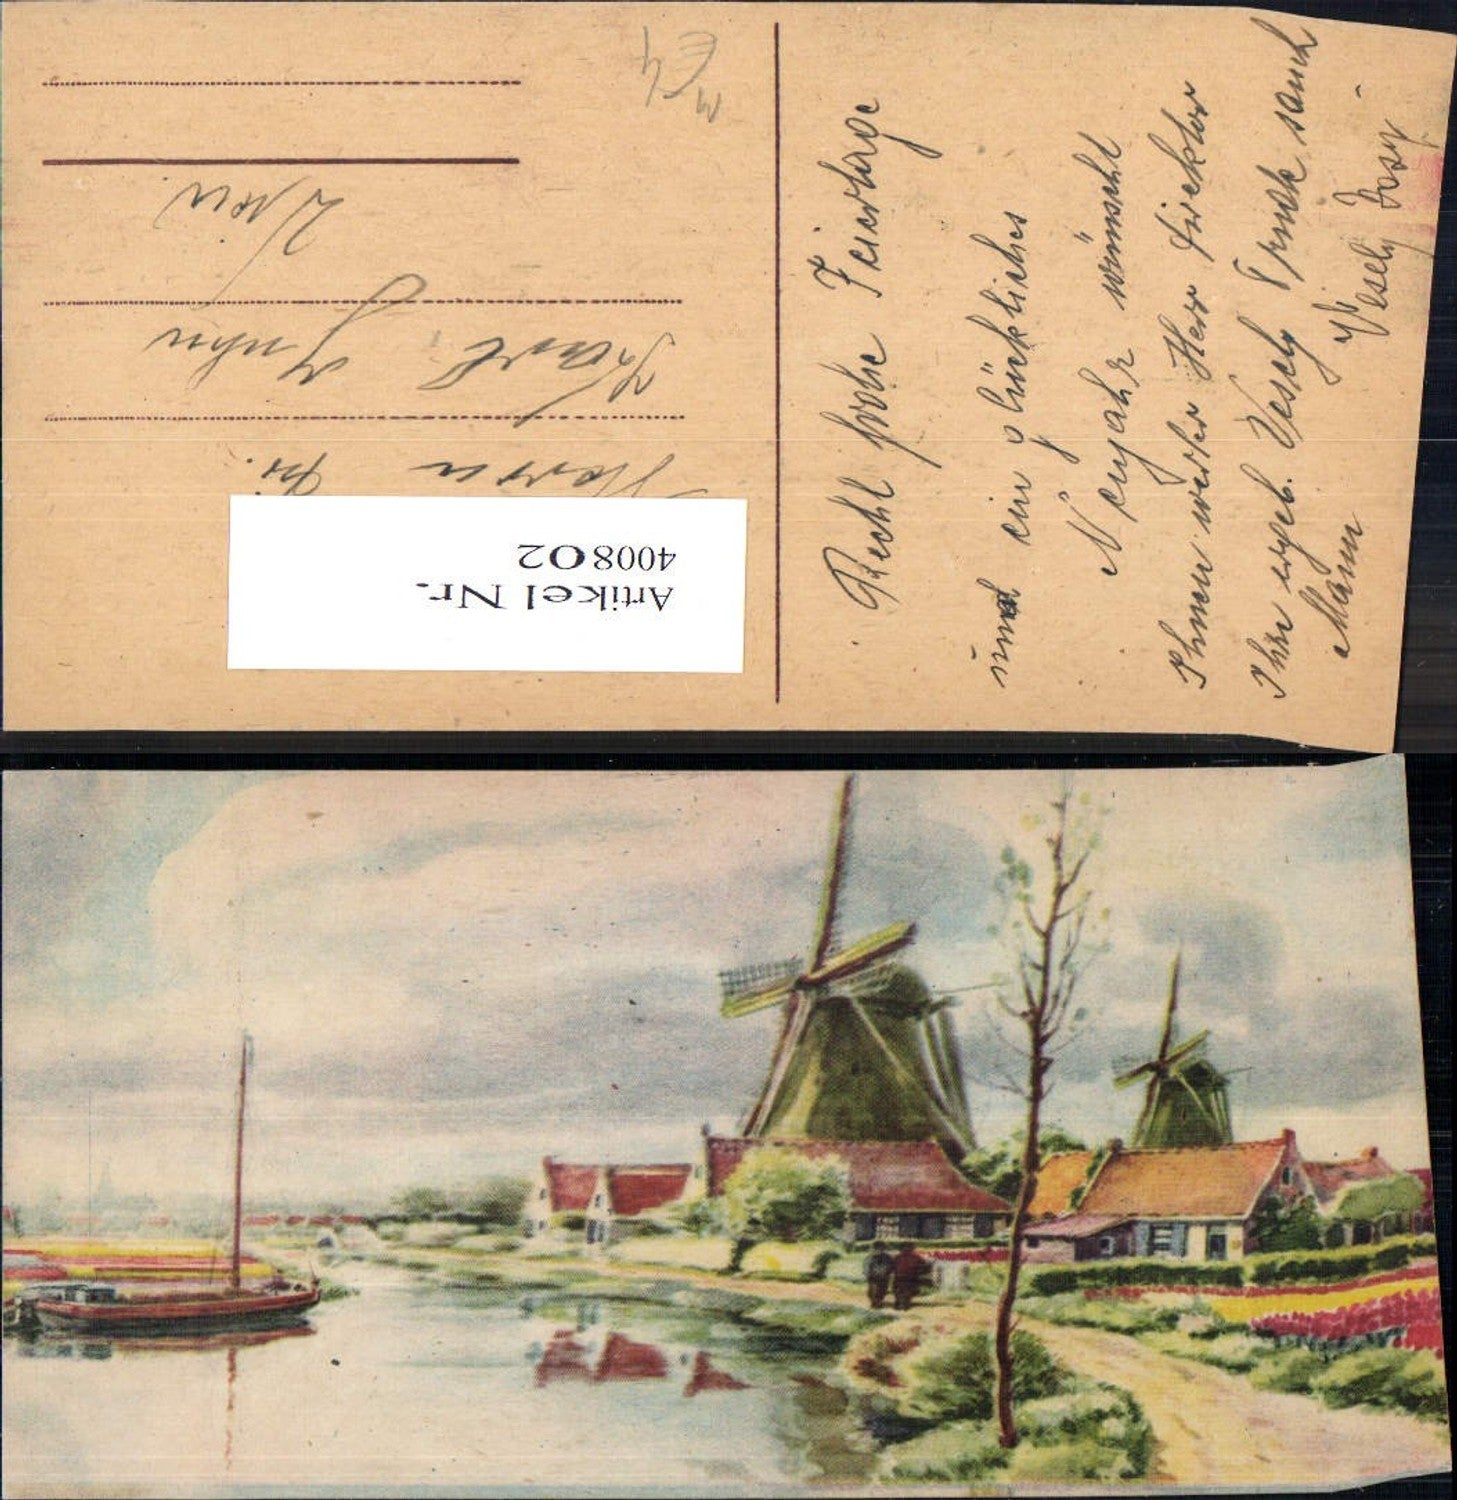 Recht frohe Feiertage
und ein glückliches
Neujahr wünscht
Ihnen werter Herr Direktor
Ihre ergeb. Vesely samt
Mann Vesely Josef
Herrn
Karl
Wien
Artikel Nr.
400802